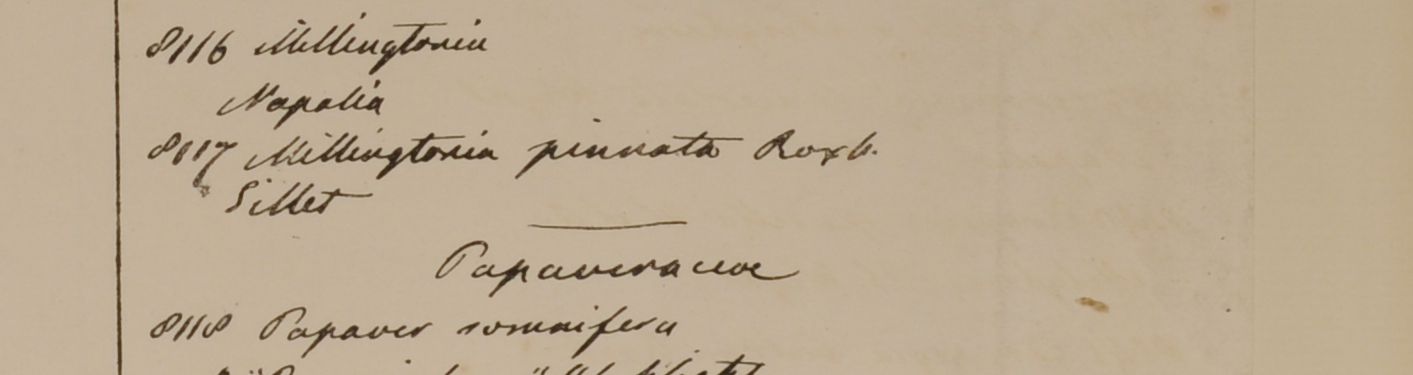 8116 Millingtonia
Napalia
8117 Millingtonia pinnata Roxb.
Sillet
Papaveraceae
8118 Papaver somnifera